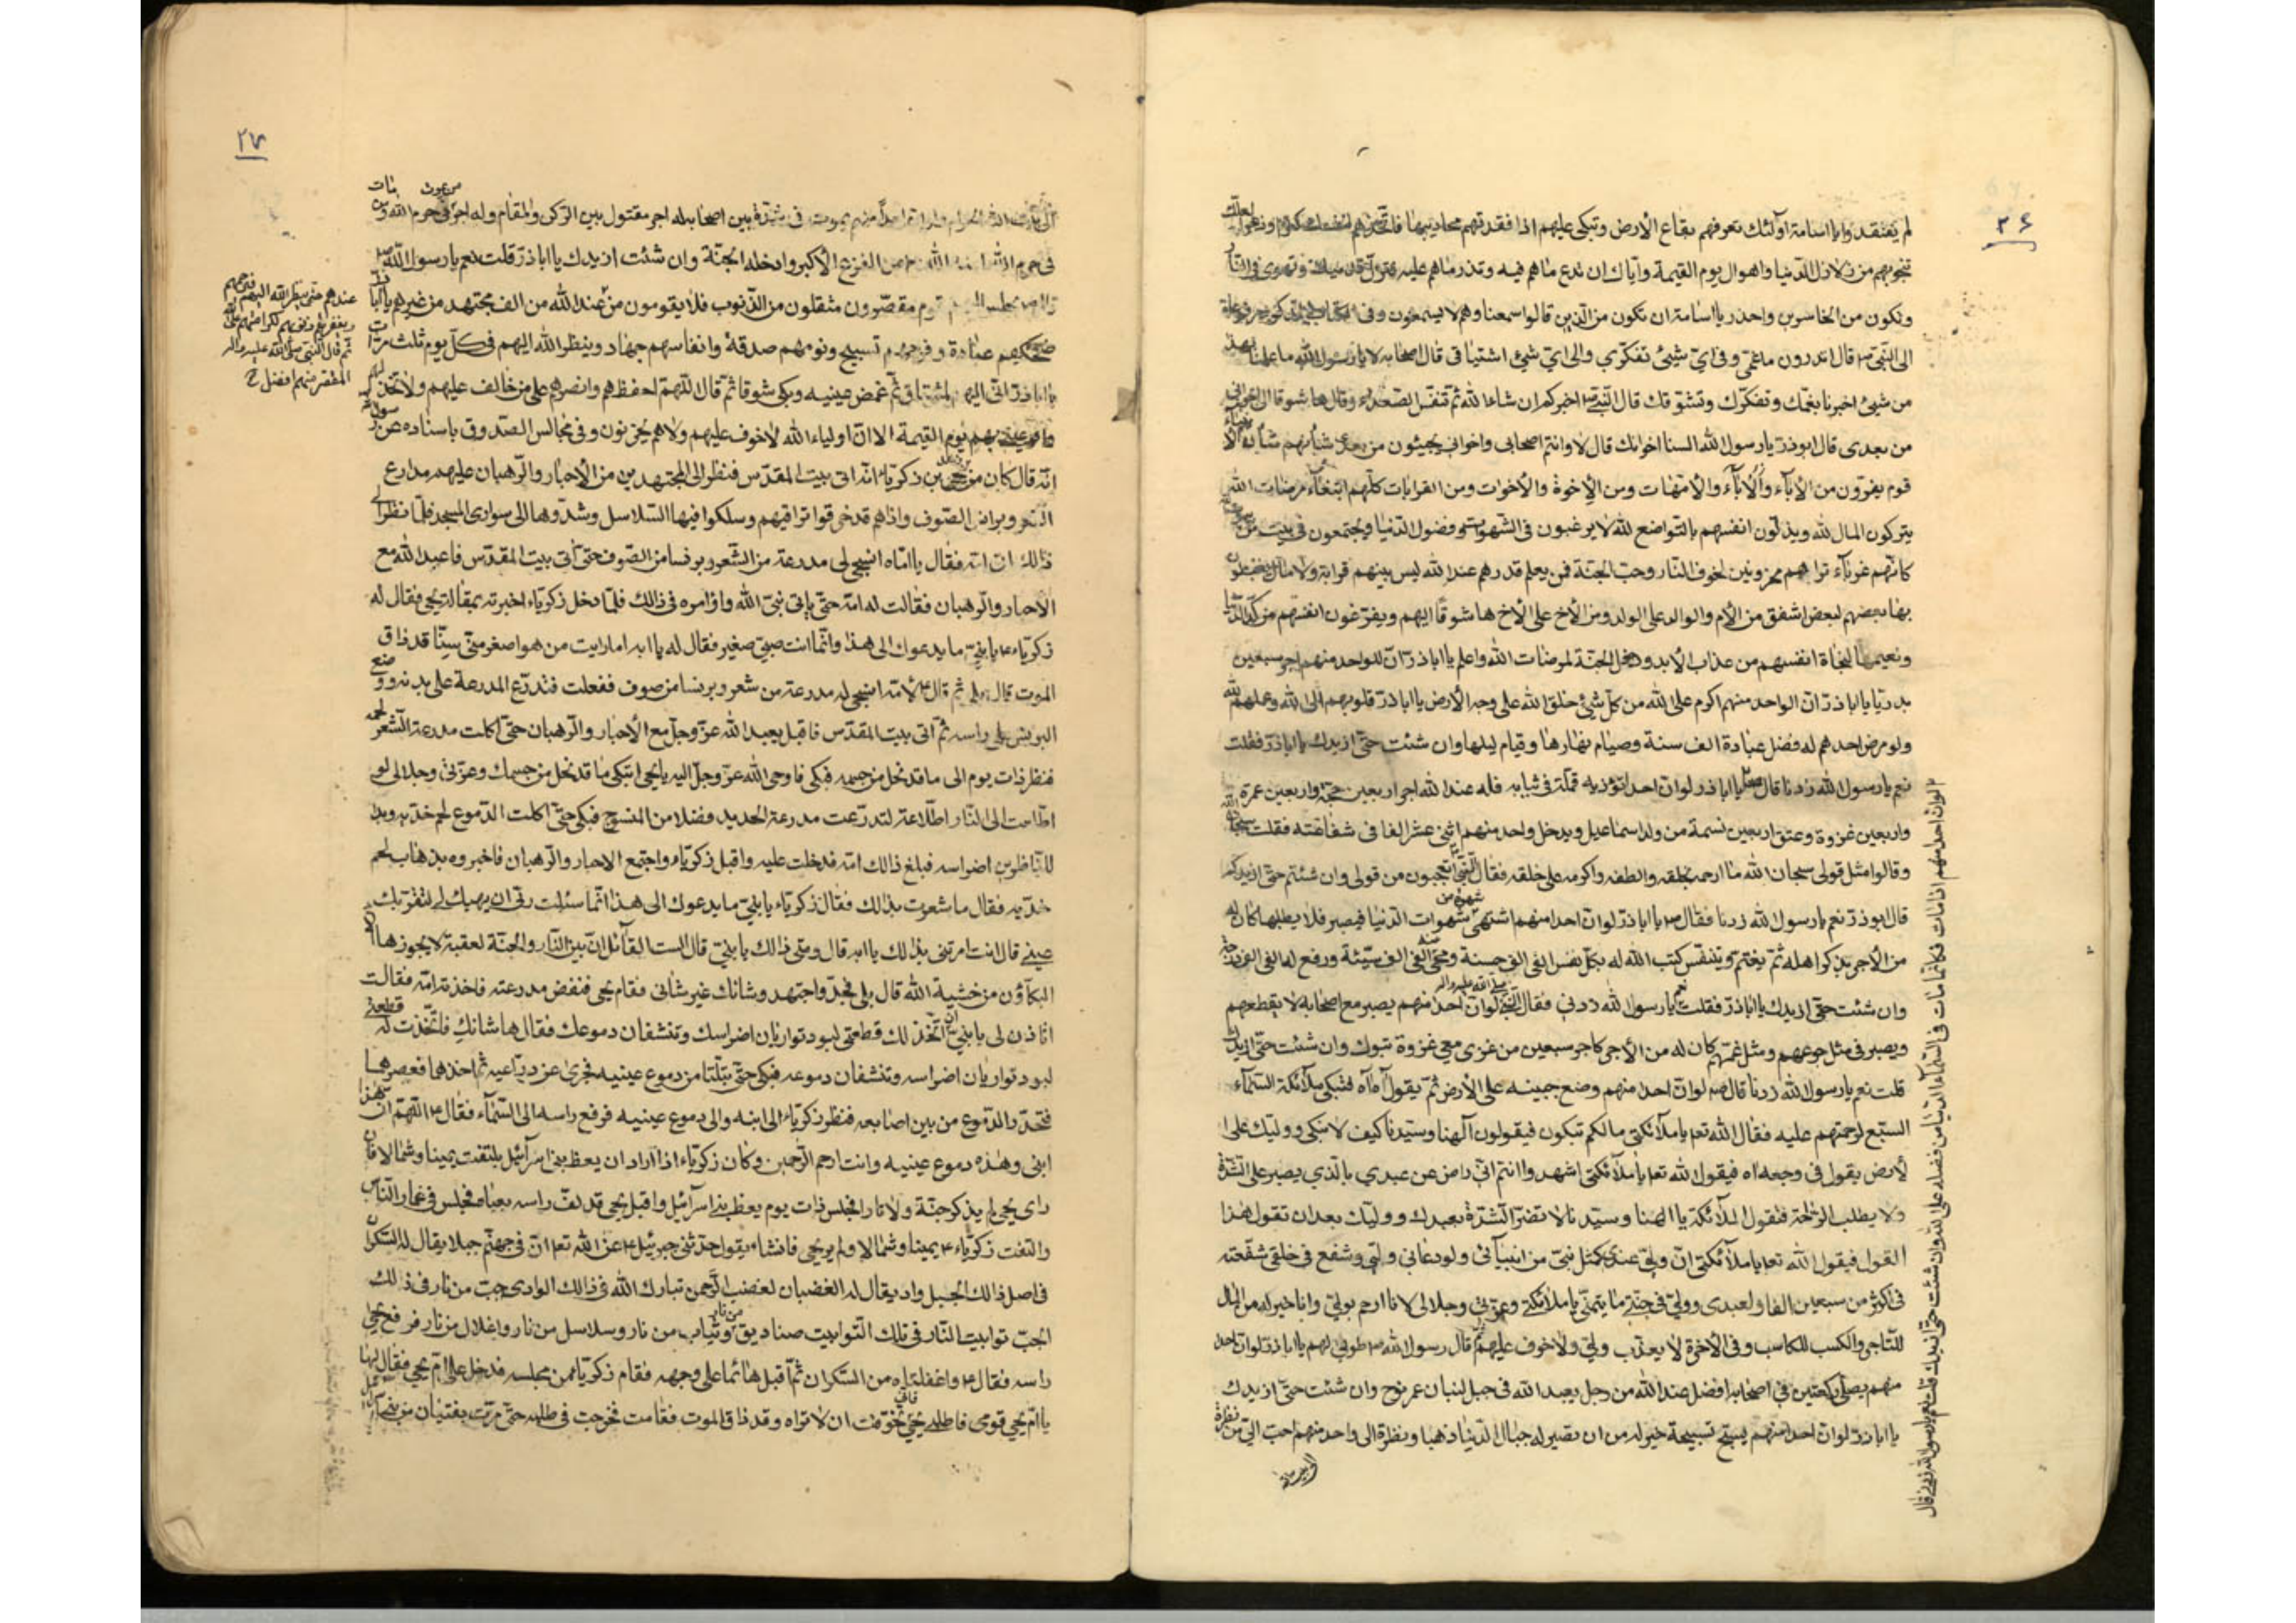 ٢۶
لم يفتقدوا يا اسامة اولئك تعرفهم بقاع الأرض وتبكى عليهم اذا فقدتهم محاريبها فاتخذهم لنفسك كنزا وذخرا لعلك
تنجو بهم من زلازل الدنيا واهوال يوم القيمة واياك ان تدع ما هم فيه وعليه فتزل قدمك وتهوى فى النار
وتكون من الخاسرين واحذر يا اسامة ان تكون من الذين قالوا سمعنا وهم لا يسمعون وفى
الى النبى ص قال اتدرون ما غمى وفى اى شيئ تفكرى والى اى شيئ اشتياقى قال اصحابه لا يا رسول الله ما علمنا بهذا
من شيئ اخبرنا بغمك وتفكرك وتشوقك قال النبى ص اخبركم ان شاء الله ثم تنفس الصعداء وقال هاه شوقا الى اخوانى
من بعدى قال ابو ذر يا رسول الله السنا اخوانك قال لا وانتم اصحابى واخوانى يجيئون من بعدى شأنهم شأن الانبياء
قوم يفرون من الآباء والأباء والأمهات ومن الإخوة والأخوات ومن القرابات كلهم ابتغاء مرضات الله
يتركون المال لله ويذلون انفسهم بالتواضع لله لا يرغبون فى الشهوات وفضول الدنيا ويجتمعون فى بيت من بيوت الله
كانهم غرباء تراهم محزونين لخوف النار وحب الجنة فمن يعلم قدرهم عند الله ليس بينهم قرابة ولا مال يعطون
بها بعضهم لبعض اشفق من الأم والوالد على الولد ومن الأخ على الأخ هاه شوقا اليهم ويفرغون انفسهم من كد الدنيا
ونعيمها لنجاة انفسهم من عذاب الأبد ودخول الجنة لمرضات الله واعلم يا اباذر ان للواحد منهم اجر سبعين
بدريا يا اباذر ان الواحد منهم اكرم على الله من كل شيئ خلق الله على وجه الأرض يا اباذر قلوبهم الى الله وعملهم لله
ولو مرض احدهم له فضل عبادة الف سنة وصيام نهارها وقيام ليلها وان شئت حتى ازيدك يا اباذر فقلت
نعم يا رسول الله زدنا قال يا اباذر لو ان احدا تؤذيه قملة فى ثيابه فله عند الله اجر اربعين حجة واربعين عمرة
واربعين غزوة وعتق اربعين نسمة من ولد اسماعيل ويدخل واحد منهم اثنى عشر الفا فى شفاعته فقلت سبحان الله
وقالوا مثل قولى سبحان الله ما ارحمه بخلقه والطفه واكرمه على خلقه فقال النبى اتعجبون من قولى وان شئتم حتى ازيدكم
قال ابوذر نعم يا رسول الله زدنا فقال ص يا اباذر لو ان احدا منهم اشتهى شهوة من شهوات الدنيا فيصبر فلا يطلبها كان له
من الأجر بذكر اهله ثم يغتم ويتنفس كتب الله له بكل نفس الفى الف حسنة ومحى عنه الفى الف سيئة ورفع له الفى الف درجة
وان شئت حتى ازيدك يا اباذر فقلت نعم يا رسول الله زدنى فقال النبى صلى الله عليه واله لو ان احدا منهم يصبر مع اصحابه لا يقطعهم
ويصبر فى مثل جوعهم ومثل غمهم كان له من الأجر كاجر سبعين من غزى معى غزوة تبوك وان شئت حتى ازيدك
قلت نعم يا رسول الله زدنا قال ص لو ان احدا منهم وضع جبينه على الأرض ثم يقول آه فتبكى ملائكة السماء
السبع لرحمتهم عليه فقال الله تعا يا ملائكتى مالكم تبكون فيقولون آلهنا وسيدنا كيف لا نبكى ووليك على ا
لأرض يقول فى وجعه اه فيقول الله تعا يا ملائكتى اشهدوا انتم انى راض عن عبدى بالذى يصبر على الشدة
ولا يطلب الراحة فتقول الملائكة يا الهنا وسيدنا لا تضر الشدة بعبدك ووليك بعد ان تقول هذا
القول فيقول الله تعا يا ملائكتى ان وليى عندى كمثل نبى من انبيائى ولو دعانى وليى وشفع فى خلقى شفعته
فى اكثر من سبعين الفا ولعبدى ووليى فى جنتى ما يتمنى يا ملائكتى وعزتى وجلالى لأنا ارحم بوليى وانا خير له من المال
للتاجر والكسب للكاسب وفى الآخرة لا يعذب وليى ولا خوف عليهم ثم قال رسول الله ص طوبى لهم يا اباذر لو ان احدا
منهم يصلى ركعتين فى اصحابه افضل عند الله من رجل يعبد الله فى جبل لبنان عمر نوح وان شئت حتى ازيدك
يا اباذر لو ان احدا منهم يسبح تسبيحة خير له من ان تصير له جبال الدنيا ذهبا ونظرة الى واحد منهم احب الى من نظرة
لو ان احدا منهم اذا مات فكانما مات فى السماء الدنيا من فضله على الله وان شئت حتى ازيدك قلت نعم يا رسول الله زدنى قال
٢٧
الى بيت الله الحرام ولو ان احدا منهم يموت فى شدة بين اصحابه له اجر مقتول بين الركن والمقام وله اجر من يموت فى حرم الله ومن مات
فى حرم الله امنه الله من الفزع الأكبر وادخله الجنة وان شئت ازيدك يا اباذر قلت نعم يا رسول الله
قال ص يجلس اليهم قوم مقصرون مثقلون من الذنوب فلا يقومون من
عندهم حتى ينظر الله اليهم فيرحمهم
ويغفر لهم ذنوبهم لكرامتهم على الله
ثم قال النبى صلى الله عليه واله
المقصر منهم افضل
عند الله من الف مجتهد من غيرهم يا ابا ذر
ضحكهم عبادة وفرحهم تسبيح ونومهم صدقة وانفاسهم جهاد وينظر الله اليهم فى كل يوم ثلث مرات
يا اباذر انى اليهم لمشتاق ثم غمض عينيه وبكى شوقا ثم قال اللهم احفظهم وانصرهم على من خالف عليهم ولا تخذلهم
واقر عينى بهم يوم القيمة الا ان اولياء الله لا خوف عليهم ولا هم يحزنون وفى مجالس الصدوق باسناده عن رسول الله
انه قال كان من زهد يحيى بن زكريا انه اتى بيت المقدس فنظر الى المجتهدين من الأحبار والرهبان عليهم مدارع
الشعر وبرانس الصوف واذا هم قد خرقوا تراقيهم وسلكوا فيها السلاسل وشدوها الى سوارى المسجد فلما نظر الى
ذالك اتى امه فقال يا اماه انسجى لى مدرعة من الشعر وبرنسا من الصوف حتى آتى بيت المقدس فاعبد الله مع
الأحبار والرهبان فقالت له امه حتى ياتى نبى الله واؤامره فى ذالك فلما دخل زكرياء اخبرته بمقالة يحيى فقال له
زكرياء يا بنى ما يدعوك الى هذا وانما انت صبى صغير فقال له يا ابه اما رايت من هو اصغر منى سنا قد ذاق
الموت قال بلى ثم قال لأمه انسجى له مدرعة من شعر وبرنسا من صوف ففعلت فتدرع المدرعة على بدنه ووضع
البرنس على راسه ثم اتى بيت المقدس فاقبل يعبد الله عز وجل مع الأحبار والرهبان حتى اكلت مدرعة الشعر لحمه
فنظر ذات يوم الى ما قد نحل من جسمه فبكى فاوحى الله عز وجل اليه يا يحيى اتبكى ما قد نحل من جسمك وعزتى وجلالى لو
اطلعت الى النار اطلاعة لتدرعت مدرعة الحديد فضلا من المنسوج فبكى حتى اكلت الدموع لحم خديه وبدا
للناظرين اضراسه فبلغ ذالك امه فدخلت عليه واقبل زكرياء واجتمع الاحبار والرهبان فاخبروه بذهاب لحم
خديه فقال ما شعرت بذالك فقال زكرياء يا بنى ما يدعوك الى هذا انما سئلت ربى ان يهبك لى لتقر بك
عينى قال انت امرتنى بذالك يا ابه قال ومتى ذالك يا بنى قال الست القائل ان بين النار والجنة لعقبة لا يجوزها الا
البكاؤن من خشية الله قال بلى فجد واجتهد وشانك غير شانى فقام يحيى فنفض مدرعته فاخذته امه فقالت
اتاذن لى يا بنى ان اتخذ لك قطعتى لبود تواريان اضراسك وتنشفان دموعك فقال لها شانك فاتخذت له قطعتى
لبود تواريان اضراسه وتنشفان دموعه فبكى حتى ابتلتا من دموع عينيه فجرى عن ذراعيه ثم اخذهما فعصرهما
فتحدر الدموع من بين اصابعه فنظر زكرياء الى ابنه والى دموع عينيه فرفع راسه الى السماء فقال اللهم ان هذا
ابنى وهذه دموع عينيه وانت ارحم الراحمين وكان زكرياء اذا اراد ان يعظ بنى اسرائيل يلتفت يمينا وشمالا فان
راى يحيى لم يذكر جنة ولا نارا فجلس ذات يوم يعظ بنى اسرائيل واقبل يحيى قد لف راسه بعباءة فجلس فى غمار الناس
والتفت زكرياء يمينا وشمالا ولم ير يحيى فانشاء يقول حدثنى جبرئيل عن الله تعا ان فى جهنم جبلا يقال له السكران
فى اصل ذالك الجبل واد يقال له الغضبان لغضب الرحمن تبارك الله فى ذالك الوادى جب من نار فى ذلك
الجب توابيت النار فى تلك التوابيت صناديق من نار وثياب من نار وسلاسل من نار واغلال من نار فرفع يحيى
راسه فقال واغفلتاه من السكران ثم اقبل هائما على وجهه فقام زكريا من مجلسه فدخل على ام يحيى فقال لها
يا ام يحيى قومى فاطلبى يحيى فانى تخوفت ان لا نراه وقد ذاق الموت فقامت فخرجت فى طلبه حتى مرت بفتيان من بنى اسرائيل